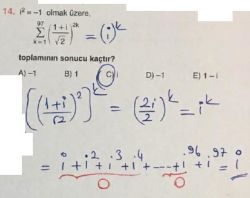 14. i² = -1 olmak üzere,
97
∑ ((1+i)/√2)^2k = (i)^k
k=1
toplamının sonucu kaçtır?
A) -1 B) 1 C) i D) -1 E) 1 - i
[((1+i)/√2)²]^k = (2i/2)^k = i^k
= i + i² + i³ + i⁴ + ---- + i^96 + i^97 = i
0 0